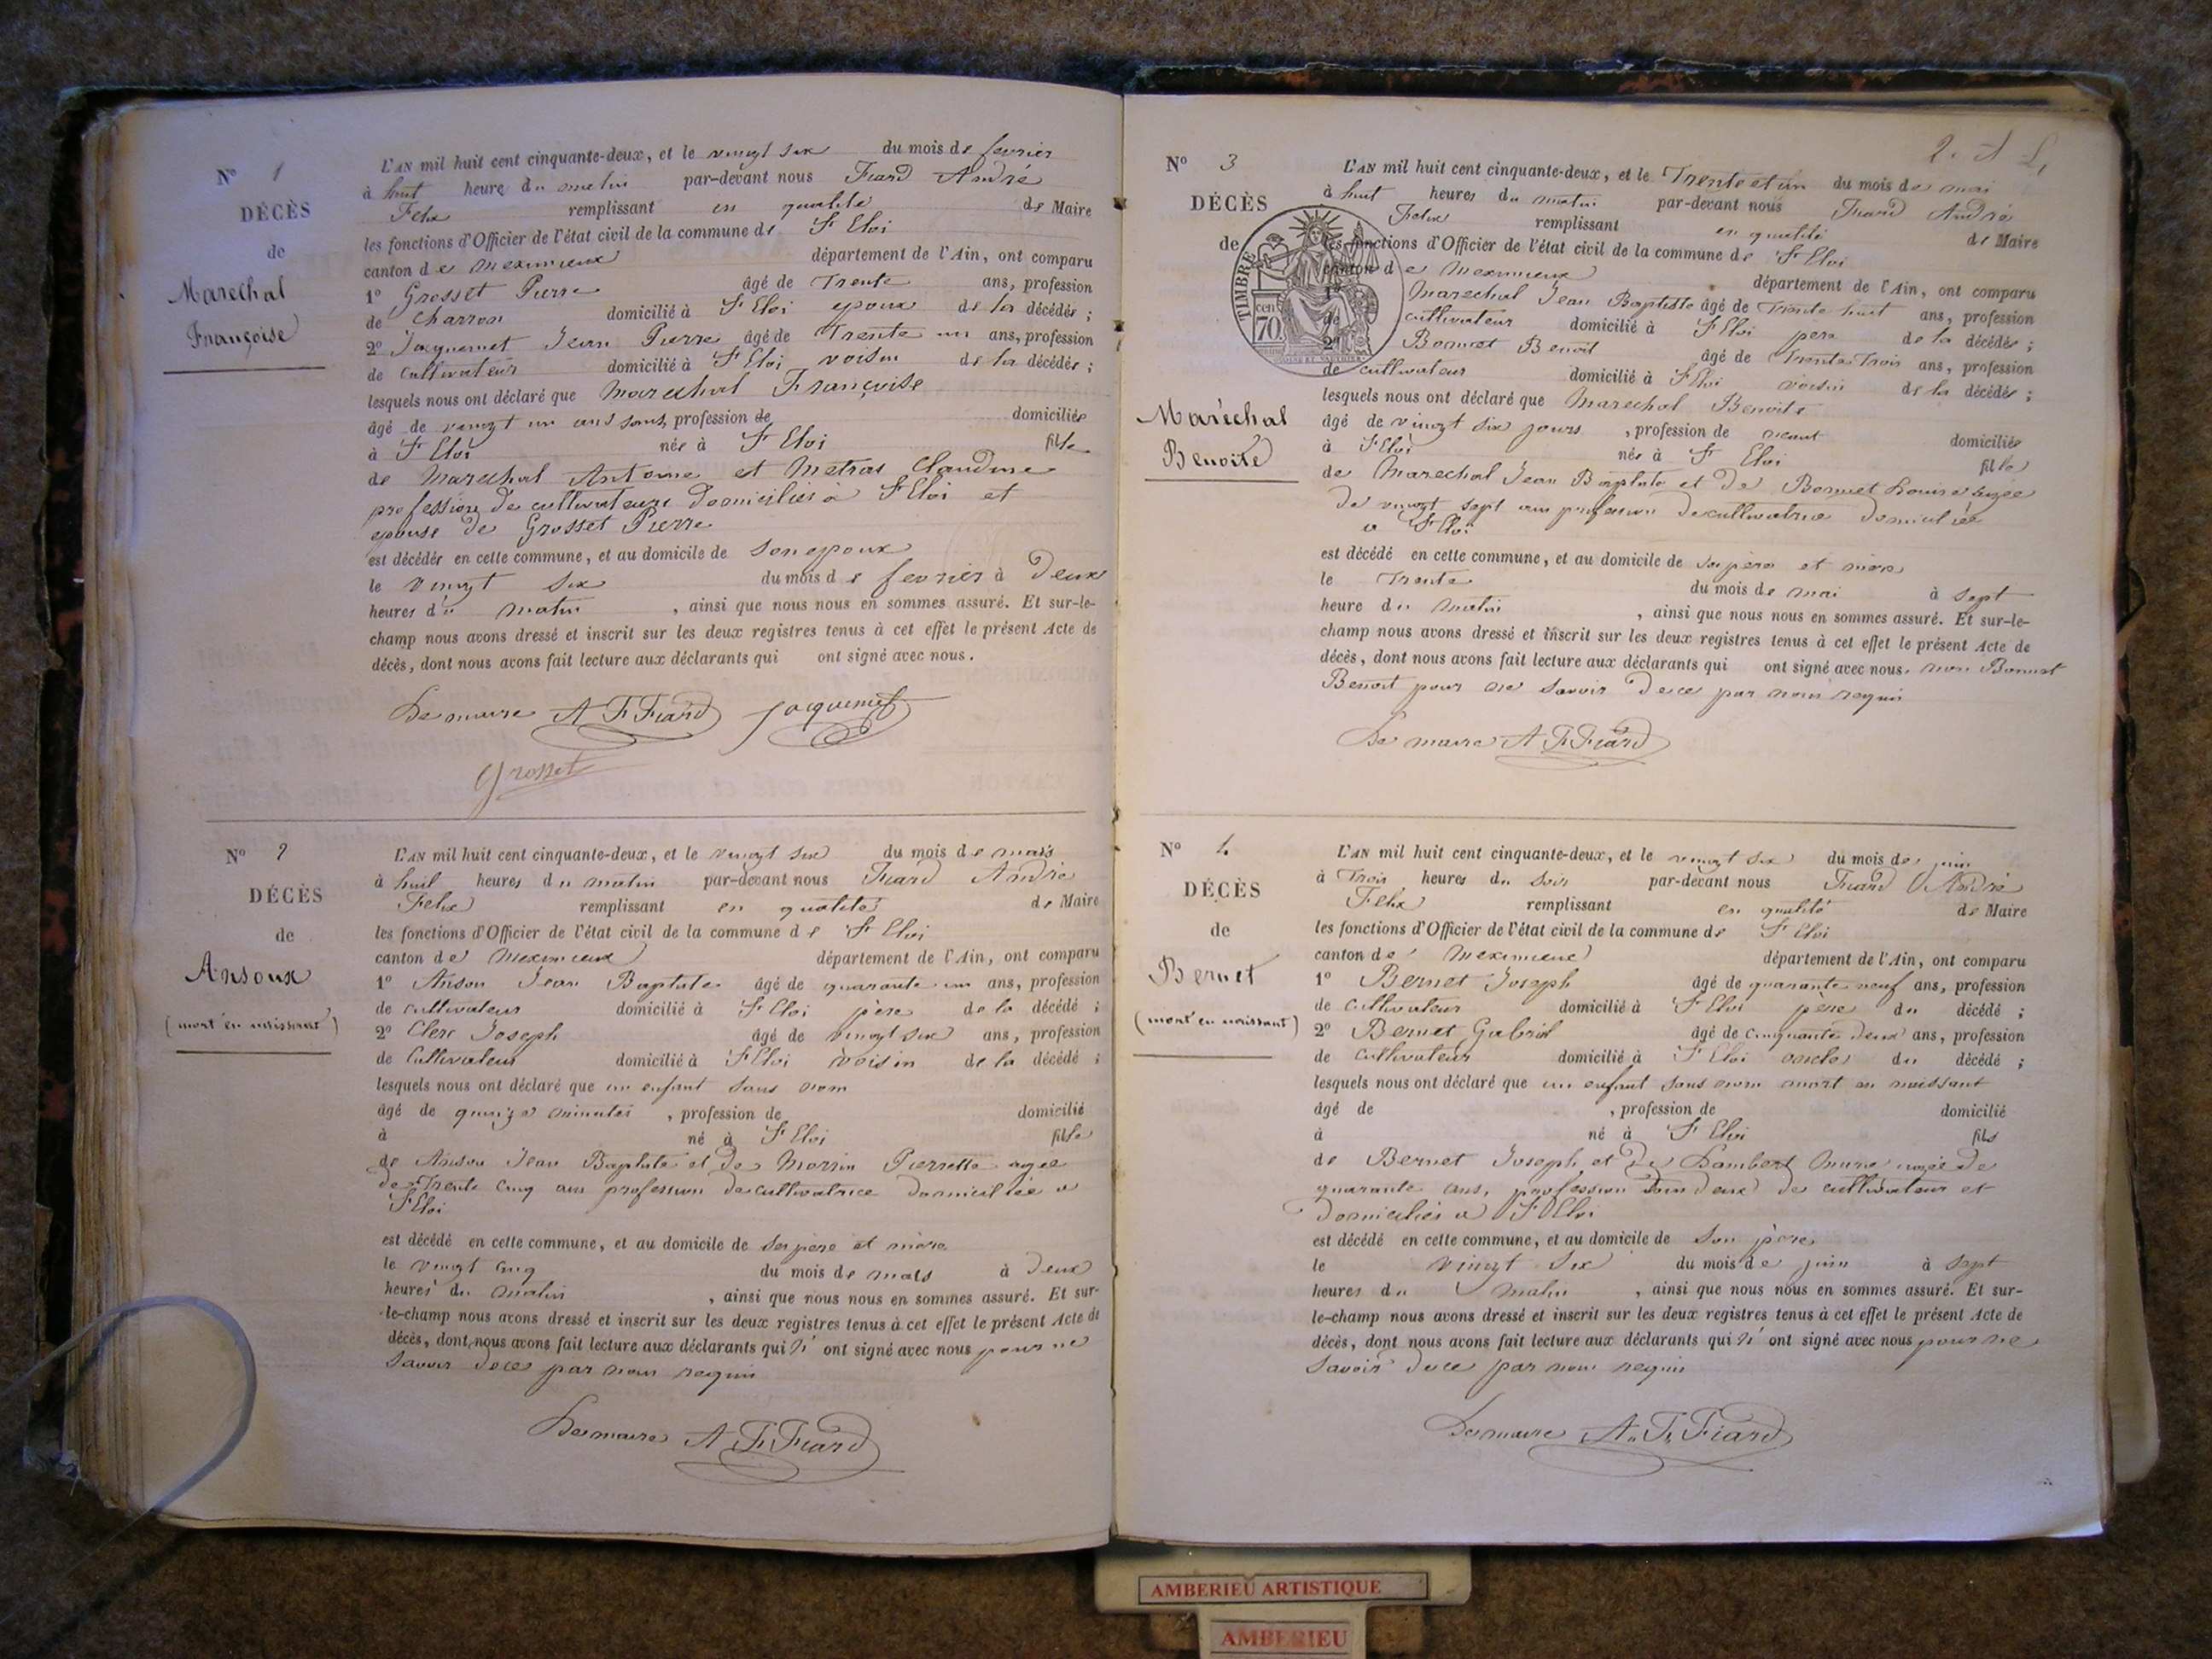 N° 1
DÉCÈS
de
Marechal
Françoise
L'AN mil huit cent cinquante-deux, et le vingt six du mois de fevrier
à huit heure du matin par-devant nous Fiard André
Felix remplissant en qualité de Maire
les fonctions d'Officier de l'état civil de la commune de St Eloi
canton de Meximieux département de l'Ain, ont comparu
1° Grosset Pierre âgé de Trente ans, profession
de Charron domicilié à St Eloi epoux de la décédée ;
2° Jacquemet Jean Pierre âgé de Trente un ans, profession
de Cultivateur domicilié à St Eloi voisin de la décédée ;
lesquels nous ont déclaré que Marechal Françoise
âgé de vingt un ans sans, profession de domiciliée
à St Eloi née à St Eloi fille
de Marechal Antoine et Metras Claudine
profession de cultivateurs domiciliés à St Eloi et
epouse de Grosset Pierre
est décédée en cette commune, et au domicile de son epoux
le vingt six du mois de fevrier à Deux
heures du matin , ainsi que nous nous en sommes assuré. Et sur-le-
champ nous avons dressé et inscrit sur les deux registres tenus à cet effet le présent Acte de
décès, dont nous avons fait lecture aux déclarants qui ont signé avec nous.
Le maire A F Fiard Jacquemet
Grosset
N° 2
DÉCÈS
de
Ansoux
(mort en naissant)
L'AN mil huit cent cinquante-deux, et le vingt six du mois de mars
à huit heures du matin par-devant nous Fiard André
Felix remplissant en qualité de Maire
les fonctions d'Officier de l'état civil de la commune de St Eloi
canton de Meximieux département de l'Ain, ont comparu
1° Ansou Jean Baptiste âgé de quarante un ans, profession
de cultivateur domicilié à St Eloi père de la décédé ;
2° Clerc Joseph âgé de vingt six ans, profession
de Cultivateur domicilié à St Eloi voisin de la décédé ;
lesquels nous ont déclaré que un enfant sans nom
âgé de quinze minutes , profession de domicilié
à né à St Eloi fille
de Ansou Jean Baptiste et de Morin Pierrette agée
de Trente cinq ans profession de cultivatrice domiciliée a
St Eloi
est décédé en cette commune, et au domicile de ses pere et mere
le vingt cinq du mois de mars à deux
heures du matin , ainsi que nous nous en sommes assuré. Et sur-
le-champ nous avons dressé et inscrit sur les deux registres tenus à cet effet le présent Acte de
décès, dont nous avons fait lecture aux déclarants qui n' ont signé avec nous pour ne
savoir de ce par nous requis
Le maire A F Fiard
2. A
N° 3
DÉCÈS
de
TIMBRE
cen 70.
Maréchal
Benoite
L'AN mil huit cent cinquante-deux, et le Trente et un du mois de mai
à huit heures du matin par-devant nous Fiard André
Felix remplissant en qualité de Maire
les fonctions d'Officier de l'état civil de la commune de St Eloi
canton de Meximieux département de l'Ain, ont comparu
1° Marechal Jean Baptiste âgé de Trente huit ans, profession
de cultivateur domicilié à St Eloi pere de la décédée ;
2° Bonnet Benoit âgé de Trente Trois ans, profession
de cultivateur domicilié à St Eloi voisin de la décédée ;
lesquels nous ont déclaré que Marechal Benoite
âgé de vingt six jours , profession de neant domiciliée
à St Eloi née à St Eloi fille
de Marechal Jean Baptiste et de Bonnet Louise agée
de vingt sept ans profession de cultivatrice domiciliée
a St Eloi
est décédé en cette commune, et au domicile de ses pere et mere
le Trente du mois de mai à sept
heure du matin , ainsi que nous nous en sommes assuré. Et sur-le-
champ nous avons dressé et inscrit sur les deux registres tenus à cet effet le présent Acte de
décès, dont nous avons fait lecture aux déclarants qui ont signé avec nous. non Bonnet
Benoit pour ne savoir de ce par nous requis
Le maire A F Fiard
N° 4
DÉCÈS
de
Bernet
(mort en naissant)
L'AN mil huit cent cinquante-deux, et le vingt six du mois de juin
à Trois heures du soir par-devant nous Fiard André
Felix remplissant en qualité de Maire
les fonctions d'Officier de l'état civil de la commune de St Eloi
canton de Meximieux département de l'Ain, ont comparu
1° Bernet Joseph âgé de quarante neuf ans, profession
de Cultivateur domicilié à St Eloi pere du décédé ;
2° Bernet Gabriel âgé de cinquante deux ans, profession
de cultivateur domicilié à St Eloi oncle du décédé ;
lesquels nous ont déclaré que un enfant sans nom mort en naissant
âgé de , profession de domicilié
à né à St Eloi fils
de Bernet Joseph et de Lambert Marie agée de
quarante ans, profession tous deux de cultivateur et
domiciliés a St Eloi
est décédé en cette commune, et au domicile de son père
le vingt six du mois de juin à sept
heures du matin , ainsi que nous nous en sommes assuré. Et sur-
le-champ nous avons dressé et inscrit sur les deux registres tenus à cet effet le présent Acte de
décès, dont nous avons fait lecture aux déclarants qui n' ont signé avec nous pour ne
savoir de ce par nous requis
Le maire A. F. Fiard
AMBERIEU ARTISTIQUE
AMBERIEU